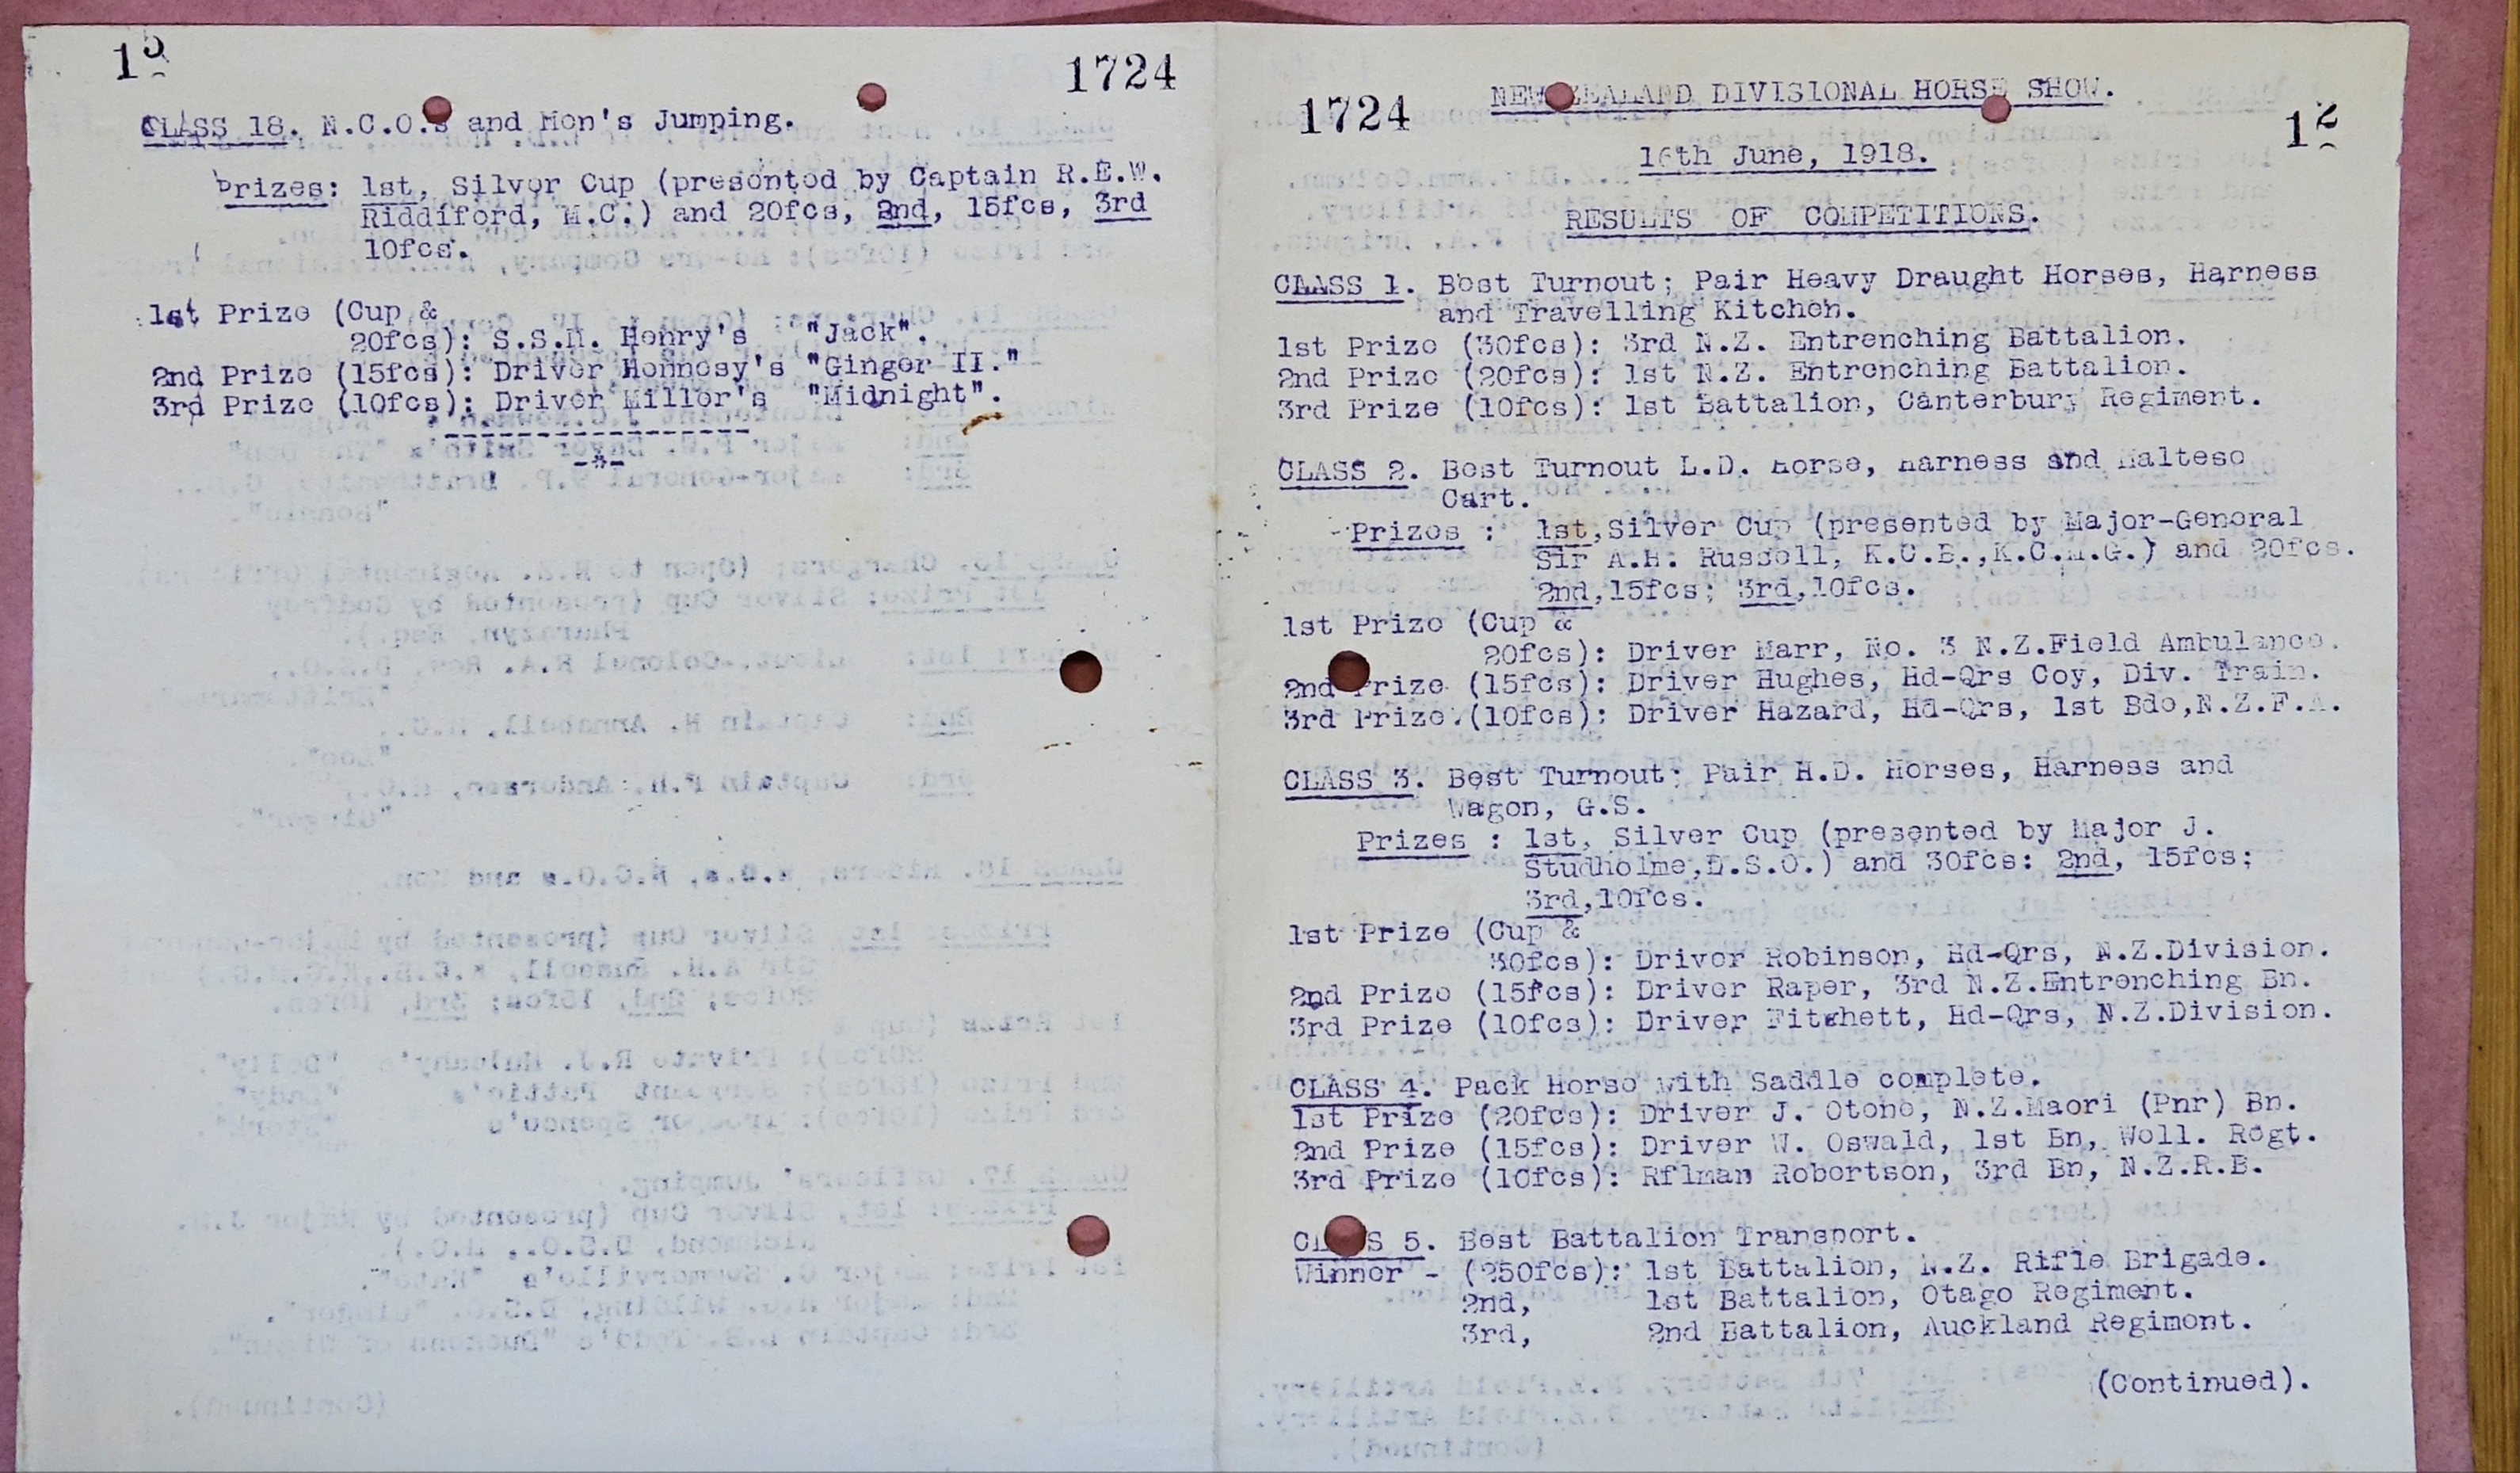 13
1724
CLASS 18. N.C.O.s and Men's Jumping.
Prizes: 1st, Silver Cup (presented by Captain R.E.W.
Riddiford, M.C.) and 20fcs, 2nd, 15fcs, 3rd
10fcs.
1st Prize (Cup &
20fcs): S.S.M. Henry's "Jack".
2nd Prize (15fcs): Driver Honnesy's "Ginger II."
3rd Prize (10fcs): Driver Miller's "Midnight".
-----------------
-*-
1724
NEW ZEALAND DIVISIONAL HORSE SHOW.
12
16th June, 1918.
RESULTS OF COMPETITIONS.
CLASS 1. Best Turnout; Pair Heavy Draught Horses, Harness
and Travelling Kitchen.
1st Prize (30fcs): 3rd N.Z. Entrenching Battalion.
2nd Prize (20fcs): 1st N.Z. Entrenching Battalion.
3rd Prize (10fcs): 1st Battalion, Canterbury Regiment.
CLASS 2. Best Turnout L.D. Horse, Harness and Maltese
Cart.
Prizes : 1st,Silver Cup (presented by Major-General
Sir A.H. Russell, K.C.B.,K.C.M.G.) and 20fcs.
2nd,15fcs; 3rd,10fcs.
1st Prize (Cup &
20fcs): Driver Marr, No. 3 N.Z.Field Ambulance.
2nd Prize (15fcs): Driver Hughes, Hd-Qrs Coy, Div. Train.
3rd Prize (10fcs): Driver Hazard, Hd-Qrs, 1st Bde,N.Z.F.A.
CLASS 3. Best Turnout; Pair H.D. Horses, Harness and
Wagon, G.S.
Prizes : 1st, Silver Cup (presented by Major J.
Studholme,D.S.O.) and 30fcs: 2nd, 15fcs;
3rd,10fcs.
1st Prize (Cup &
30fcs): Driver Robinson, Hd-Qrs, N.Z.Division.
2nd Prize (15fcs): Driver Raper, 3rd N.Z.Entrenching Bn.
3rd Prize (10fcs): Driver Fitchett, Hd-Qrs, N.Z.Division.
CLASS 4. Pack Horse with Saddle complete.
1st Prize (20fcs): Driver J. Otone, N.Z.Maori (Pnr) Bn.
2nd Prize (15fcs): Driver W. Oswald, 1st Bn, Well. Regt.
3rd Prize (10fcs): Rflman Robertson, 3rd Bn, N.Z.R.B.
CLASS 5. Best Battalion Transport.
Winner - (250fcs): 1st Battalion, N.Z. Rifle Brigade.
2nd, 1st Battalion, Otago Regiment.
3rd, 2nd Battalion, Auckland Regiment.
(Continued).